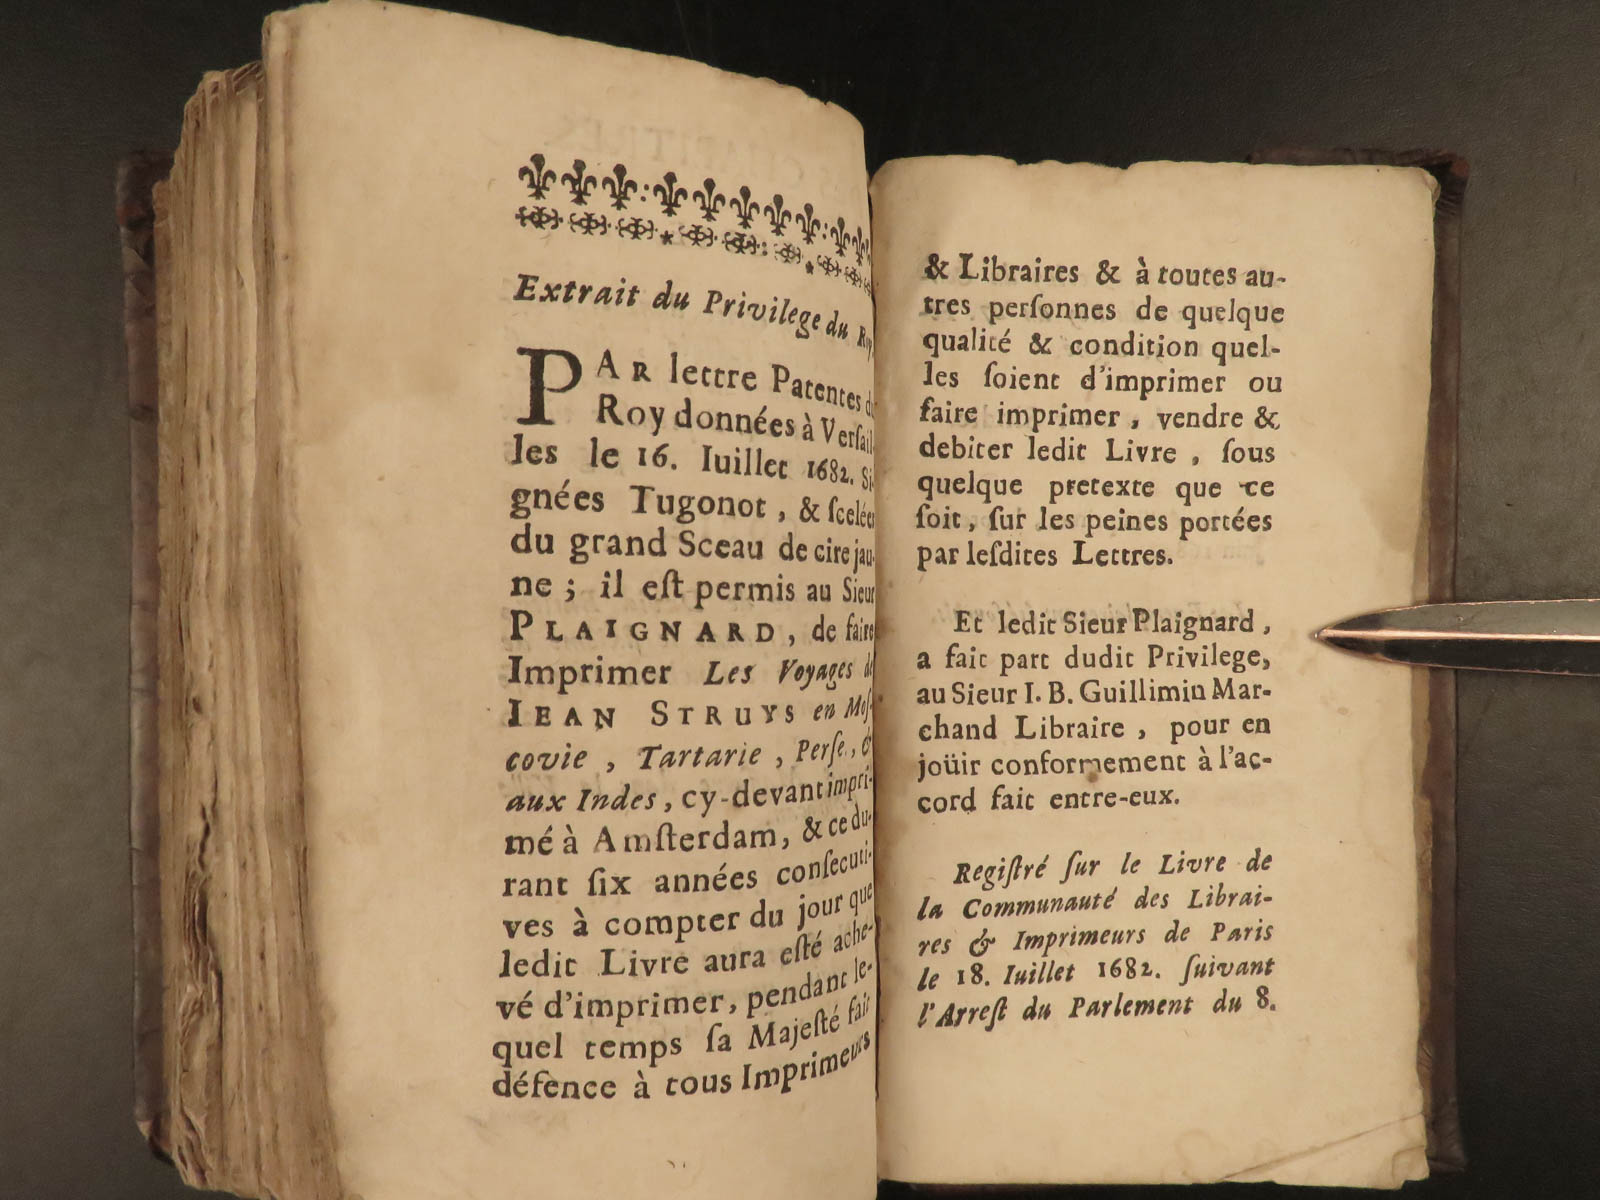 Extrait du Privilege du Roy.
PAR lettre Patentes du
Roy données à Versail
les le 16. Iuillet 1682. Si-
gnées Tugonot, & ſcelées
du grand Sceau de cire jau-
ne ; il eſt permis au Sieur
PLAIGNARD, de faire
Imprimer Les Voyages de
IEAN STRUYS en Moſ-
covie, Tartarie, Perſe, &
aux Indes, cy-devant impri-
mé à Amſterdam, & ce du-
rant ſix années conſecuti-
ves à compter du jour que
ledit Livre aura eſté ache-
vé d'imprimer, pendant le-
quel temps ſa Majeſté fait
défence à tous Imprimeurs
& Libraires & à toutes au-
tres perſonnes de quelque
qualité & condition quel-
les ſoient d'imprimer ou
faire imprimer, vendre &
debiter ledit Livre, ſous
quelque pretexte que ce
ſoit, ſur les peines portées
par leſdites Lettres.
Et ledit Sieur Plaignard,
a fait part dudit Privilege,
au Sieur I. B. Guillimin Mar-
chand Libraire, pour en
joüir conformement à l'ac-
cord fait entre-eux.
Regiſtré ſur le Livre de
la Communauté des Librai-
res & Imprimeurs de Paris
le 18. Iuillet 1682. ſuivant
l'Arreſt du Parlement du 8.